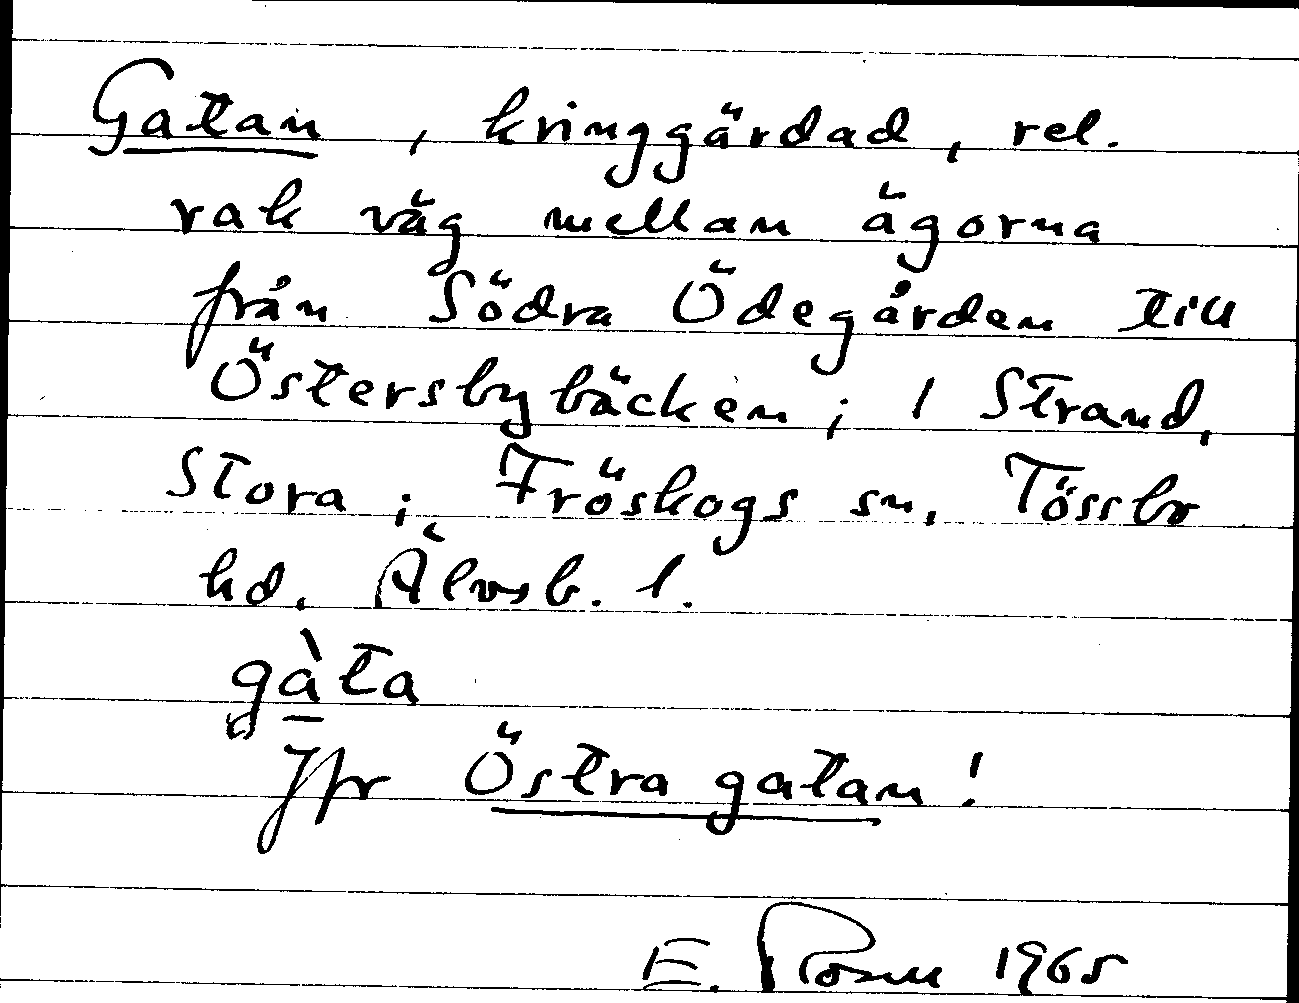 Gatan, kringgärdad, rel.
rak väg mellan ägorna
från Södra Ödegården till
Östersbybäcken; 1 Strand,
Stora; Fröskogs sn, Tössbo
hd, Älvsb. l.
gàta
Jfr Östra gatan!
E. Rosell 1965